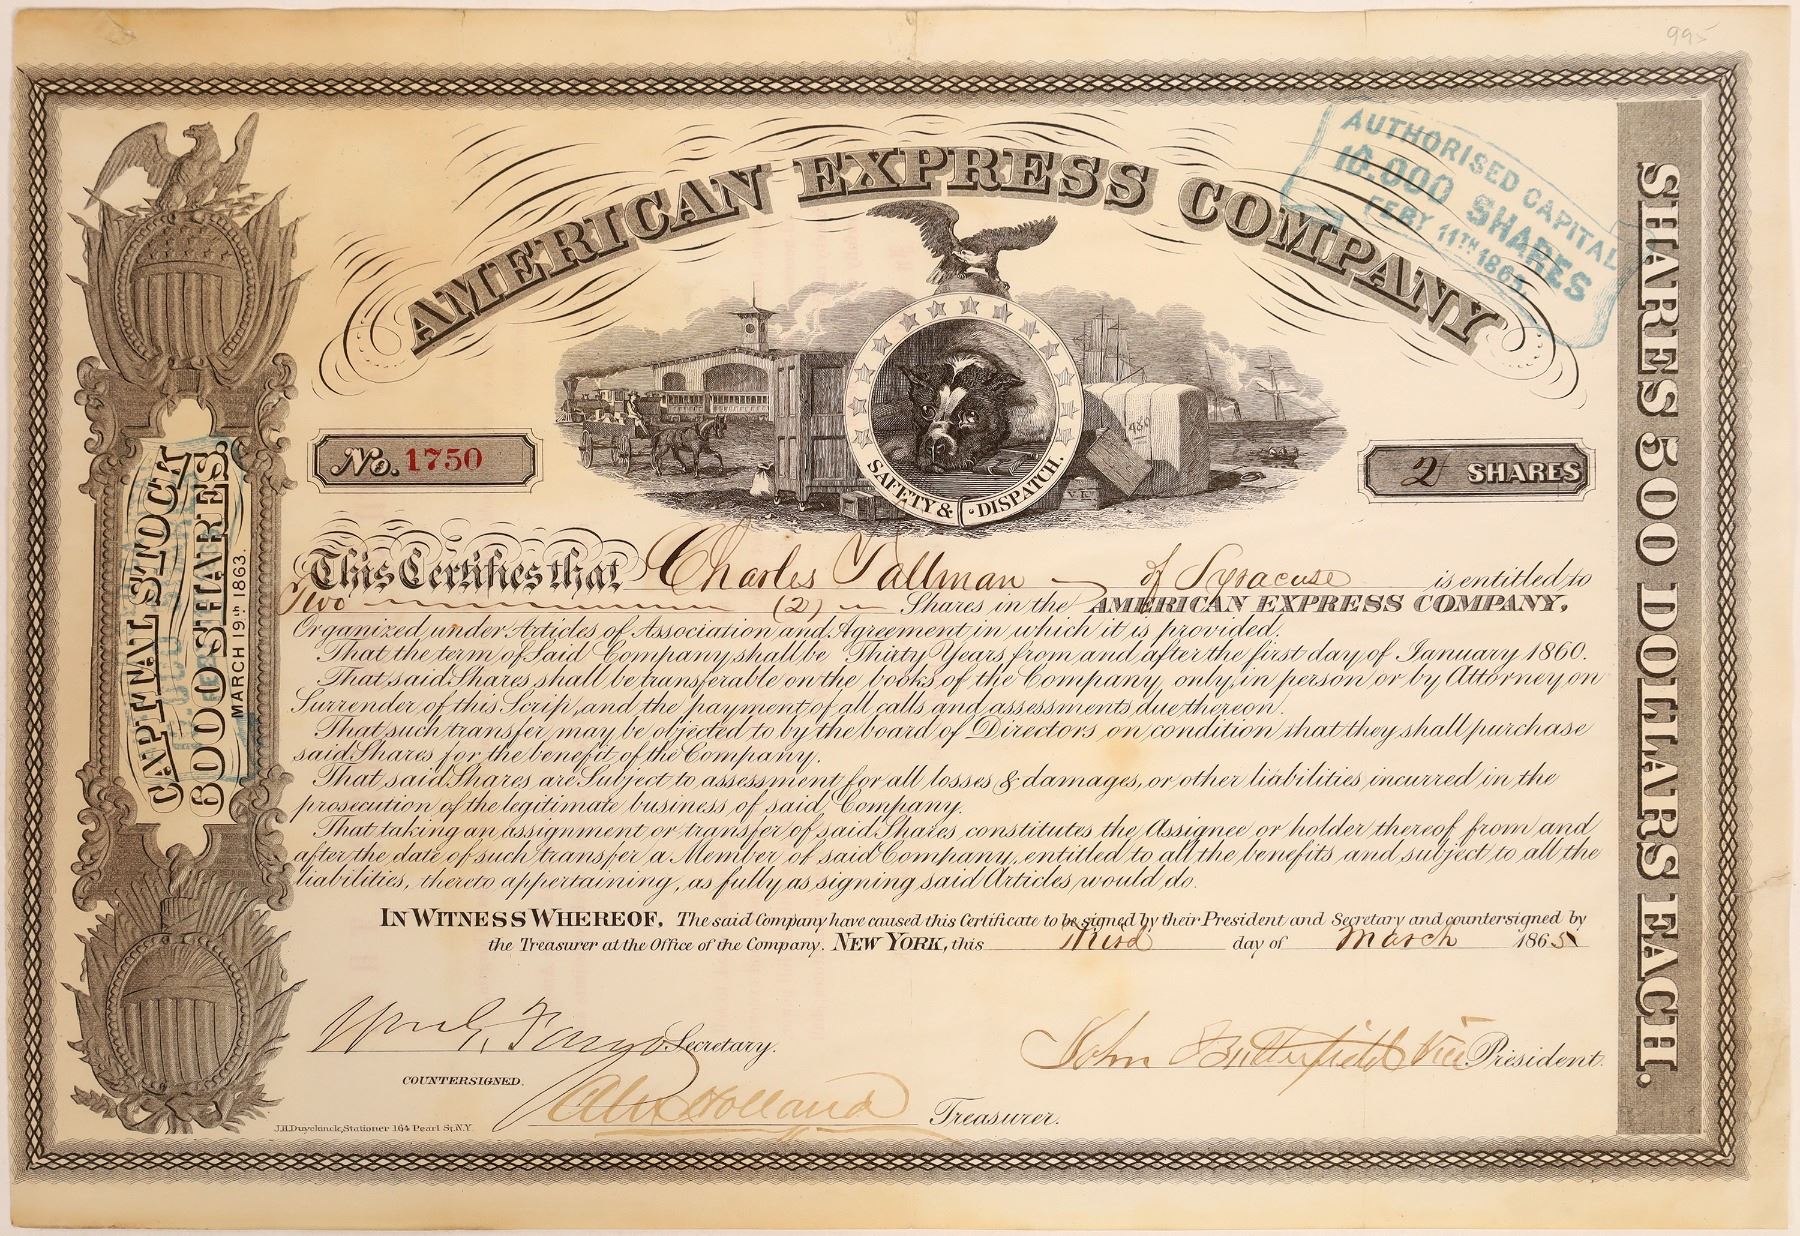 995
AMERICAN EXPRESS COMPANY
AUTHORISED CAPITAL
18.000 SHARES
FEBY 11TH 1865.
SAFETY & DISPATCH.
480
No. 1750
2 SHARES
SHARES 500 DOLLARS EACH.
CAPITAL STOCK
6000 SHARES.
MARCH 19th 1863.
This Certifies that Charles Tallman of Syracuse is entitled to
Two (2) Shares in the AMERICAN EXPRESS COMPANY,
Organized, under Articles of Association and Agreement in which it is provided.
That the term of Said Company shall be Thirty Years from and after the first day of January 1860.
That said Shares shall be transferable on the books of the Company only, in person or by Attorney on
Surrender of this Scrip, and the payment of all calls and assessments due thereon.
That such transfer may be objected to by the board of Directors on condition that they shall purchase
said Shares for the benefit of the Company.
That said Shares are Subject to assessment for all losses & damages, or other liabilities incurred in the
prosecution of the legitimate business of said Company.
That taking an assignment or transfer of said Shares constitutes the Assignee or holder thereof from and
after the date of such transfer a Member of said Company, entitled to all the benefits and subject to all the
liabilities, thereto appertaining, as fully as signing said Articles would do.
IN WITNESS WHEREOF, The said Company have caused this Certificate to be signed by their President and Secretary and countersigned by
the Treasurer at the Office of the Company. NEW YORK, this Third day of March 1865
Wm G. Fargo Secretary.
John Butterfield Vice President.
COUNTERSIGNED.
Alex Holland Treasurer.
J.H. Duyckinck, Stationer 164 Pearl St. N.Y.